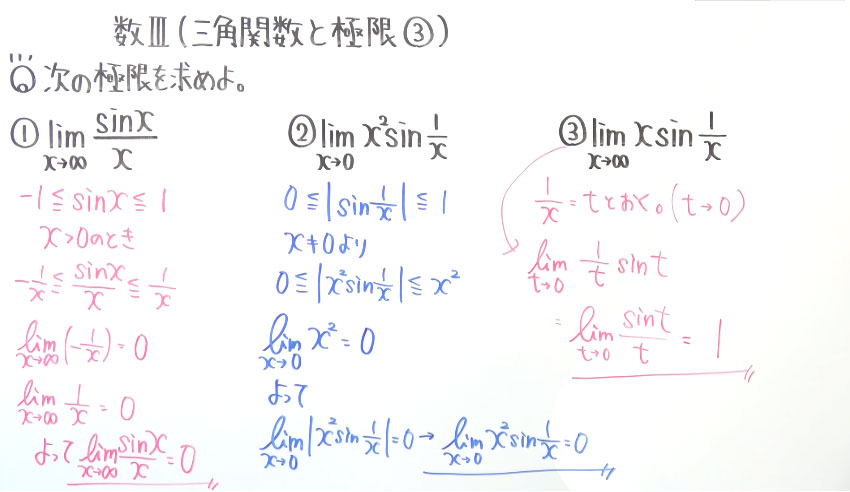 数Ⅲ(三角関数と極限③)
Q 次の極限を求めよ。
① lim_{x→∞} sinx/x
-1 ≦ sinx ≦ 1
x>0のとき
-1/x ≦ sinx/x ≦ 1/x
lim_{x→∞} (-1/x) = 0
lim_{x→∞} 1/x = 0
よって lim_{x→∞} sinx/x = 0
② lim_{x→0} x² sin 1/x
0 ≦ |sin 1/x| ≦ 1
x≠0より
0 ≦ |x² sin 1/x| ≦ x²
lim_{x→0} x² = 0
よって
lim_{x→0} |x² sin 1/x| = 0 → lim_{x→0} x² sin 1/x = 0
③ lim_{x→∞} x sin 1/x
1/x = tとおく。(t→0)
lim_{t→0} 1/t sint
= lim_{t→0} sint/t = 1